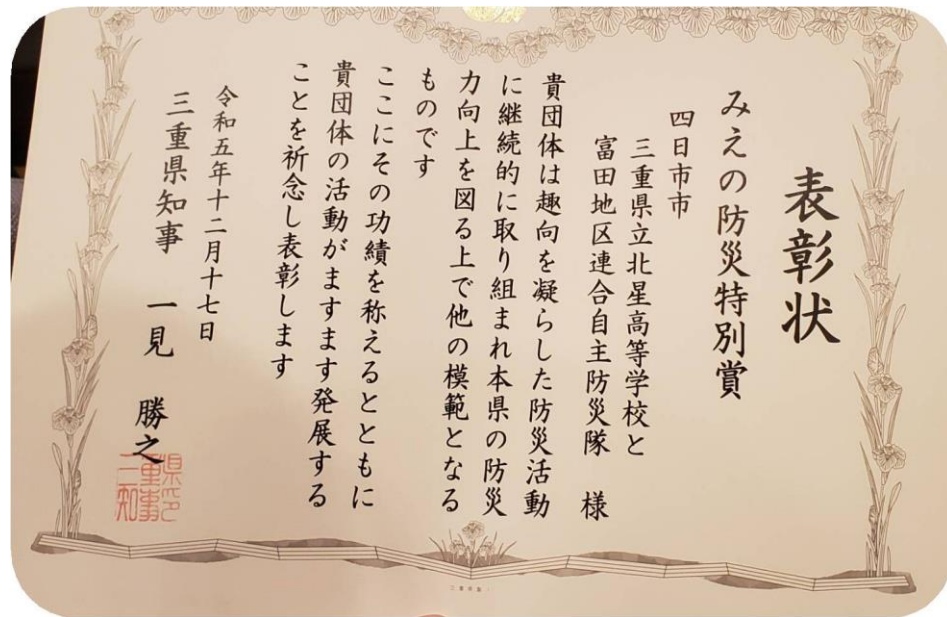 表彰状
みえの防災特別賞
四日市市
三重県立北星高等学校と
富田地区連合自主防災隊　様
貴団体は趣向を凝らした防災活動
に継続的に取り組まれ本県の防災
力向上を図る上で他の模範となる
ものです
ここにその功績を称えるとともに
貴団体の活動がますます発展する
ことを祈念し表彰します
令和五年十二月十七日
三重県知事　一見　勝之